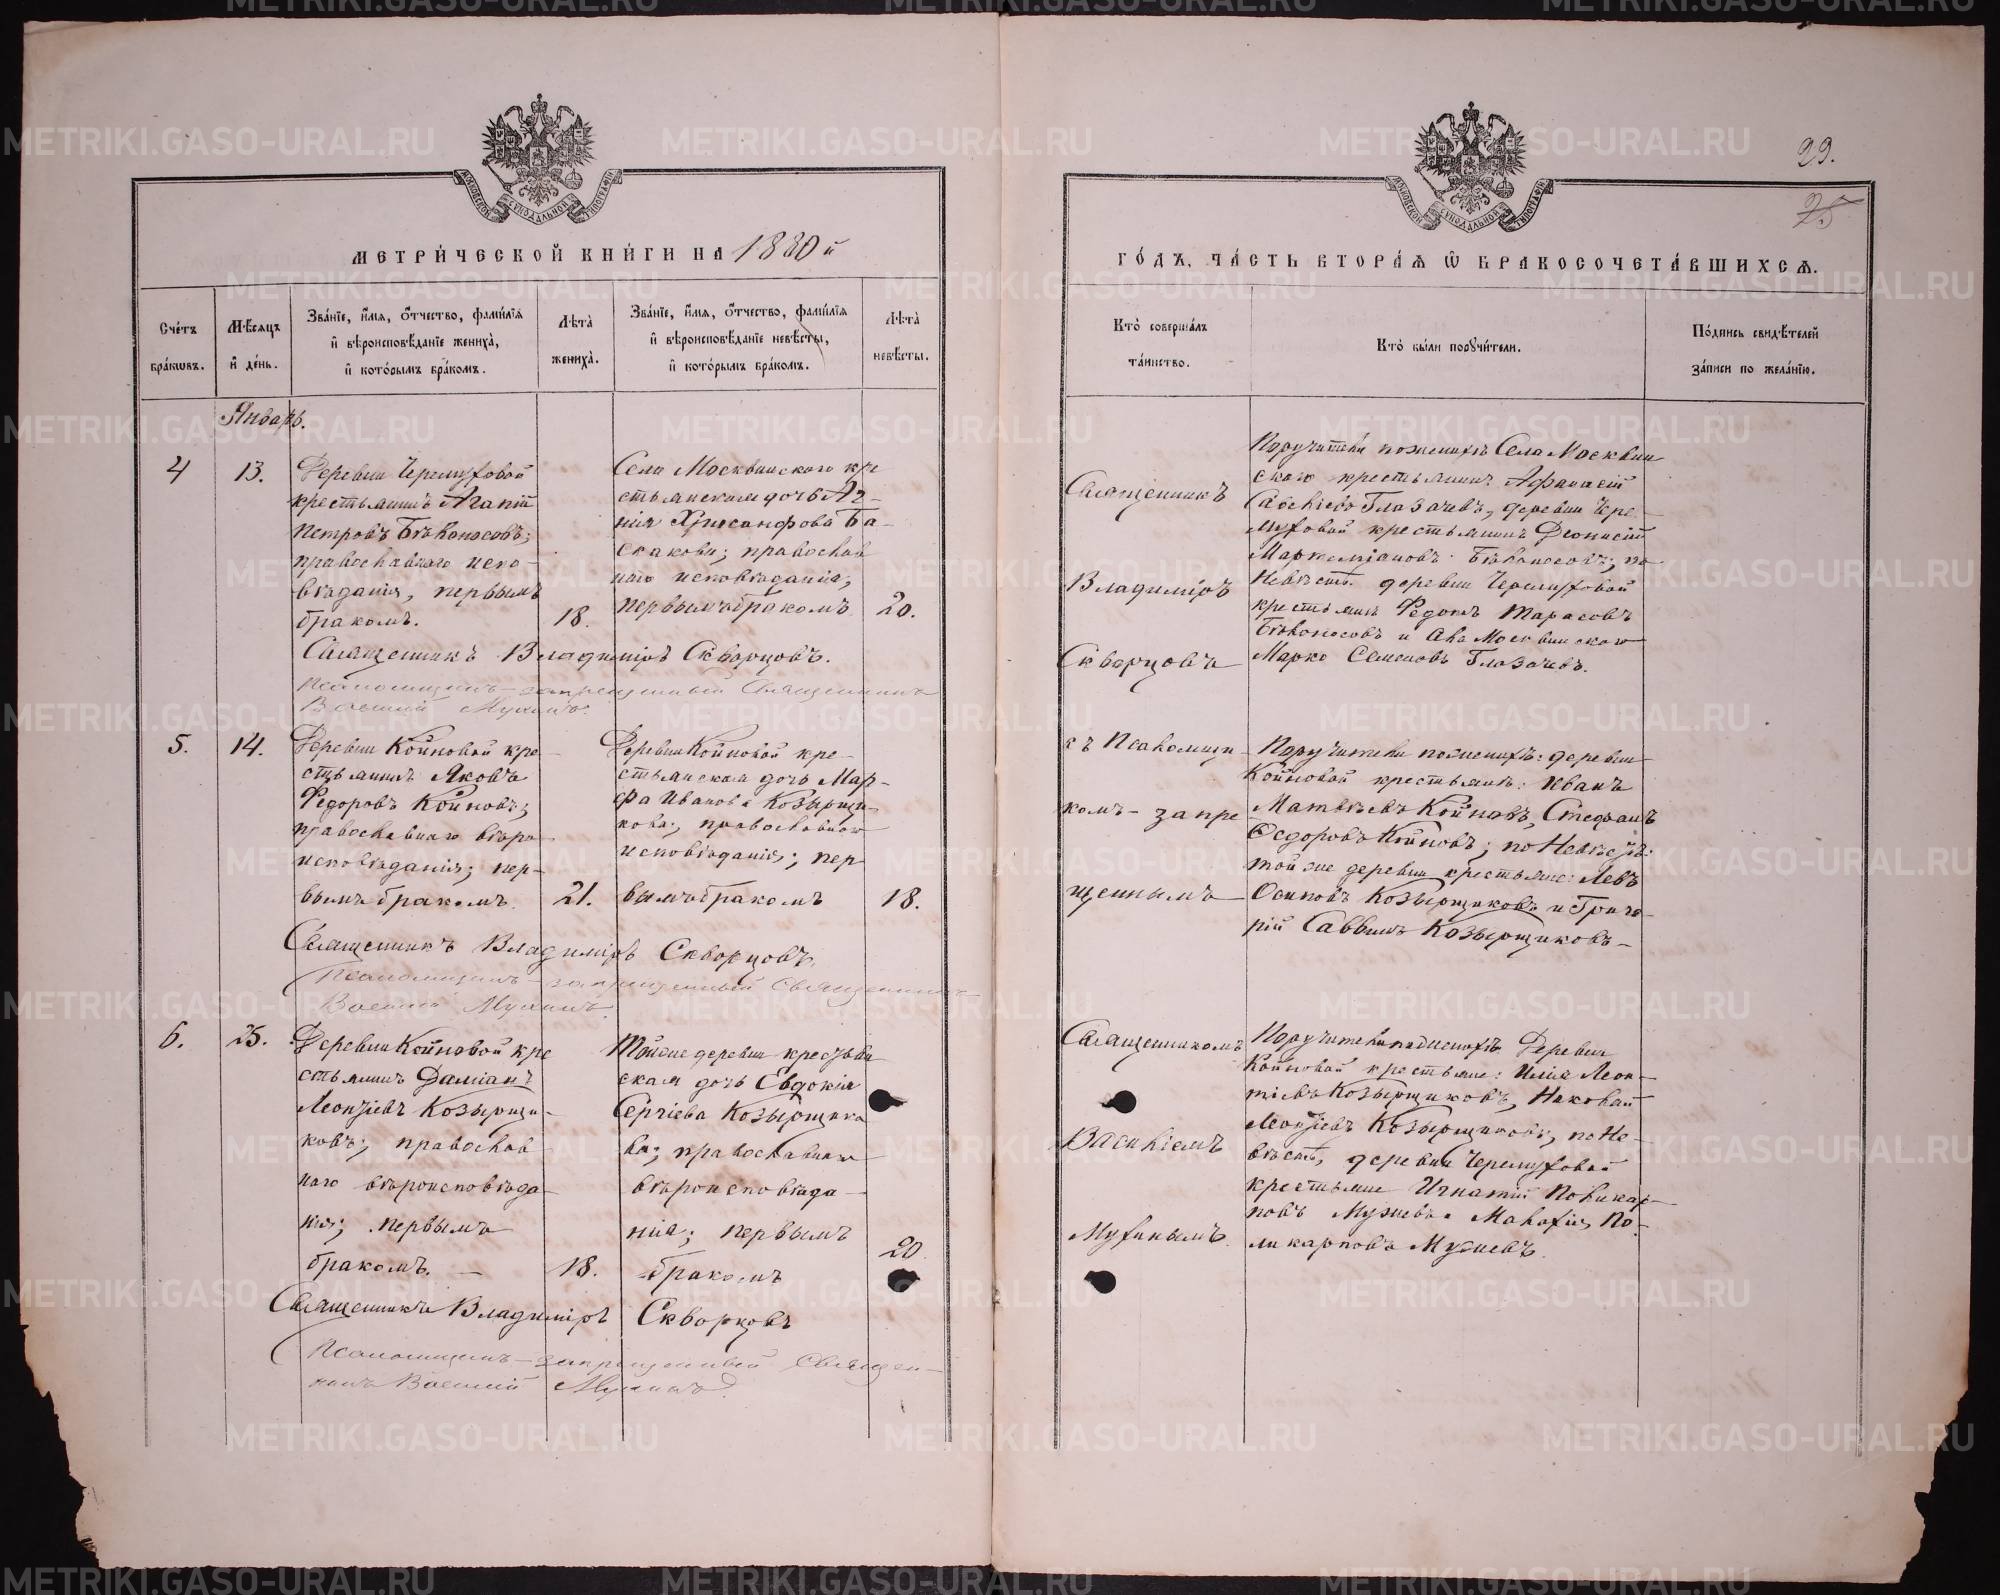 МЕТРИ́ЧЕСКОЙ КНИ́ГИ НА 1880й
Сче́тъ бра́кѡвъ.
Мѣ́сяцъ и де́нь.
Зва́нїе, и́мя, о́тчество, фами́лїя и вѣроисповѣ́данїе жениха̀, и кото́рымъ бра́комъ.
Лѣта̀ жениха̀.
Зва́нїе, и́мя, о́тчество, фами́лїя и вѣроисповѣ́данїе невѣ́сты, и кото́рымъ бра́комъ.
Лѣта̀ невѣ́сты.
Январь.
4
13.
Деревни Черемуховой
крестьянинъ Агапій
Петровъ Бѣлоносовъ;
православнаго испо-
вѣданія, первымъ
бракомъ.
18.
Села Москвинскаго кре
стьянская дочь Аг-
нія Хрисанфова Ба-
сакова; православ
наго исповѣданія,
первымъ бракомъ
20.
Священникъ Владиміръ Скворцовъ.
Псаломщикъ - запрещенный Священникъ
Василій Мухинъ.
5.
14.
Деревни Койновой кре-
стьянинъ Яковъ
Ѳедоровъ Койновъ;
православнаго вѣро-
исповѣданія; пер-
вымъ бракомъ
21.
Деревни Койновой кре-
стьянская дочь Мар-
фа Иванова Козырщи-
кова; православнаго
исповѣданія; пер
вымъ бракомъ
18.
Священникъ Владиміръ Скворцовъ
Псаломщикъ - запрещенный Священникъ
Василій Мухинъ.
6.
25.
Деревни Койновой кре
стьянинъ Даміанъ
Леонтіевъ Козырщи-
ковъ; православ
наго вѣроисповѣда-
нія; первымъ
бракомъ. —
18.
Тойже деревни крестьян
ская дочь Евдокія
Сергіева Козырщико
ва; православнаго
вѣроисповѣда-
нія; первымъ
бракомъ
20
Священникъ Владиміръ Скворцовъ
Псаломщикъ - запрещенный Священ-
никъ Василій Мухинъ
29.
25
ГО́ДЪ, ЧА́СТЬ ВТОРА́Я Ѡ БРАКОСОЧЕТА́ВШИХСЯ.
Кто̀ соверша́лъ та́инство.
Кто̀ бы́ли поручи́тели.
По́дпись свидѣ́телей за́писи по жела́нїю.
Священникъ
Владиміръ
Скворцовъ
Поручители по женихѣ Села Москвин
скаго крестьянинъ Афанасій
Савельевъ Глазачевъ, деревни Чере-
муховой крестьянинъ Діонисій
Маркелліановъ Бѣлоносовъ; по
Невѣстѣ деревни Черемуховой
крестьянинъ Федотъ Тарасовъ
Бѣлоносовъ и Села Москвинскаго
Марко Семеновъ Глазачевъ.
съ Псаломщи-
комъ - запре
щеннымъ
Поручители по женихѣ: деревни
Койновой крестьяне: Иванъ
Матвѣевъ Койновъ, Стефанъ
Ѳедоровъ Койновъ; по Невѣстѣ:
той же деревни крестьяне: Левъ
Осиповъ Козырщиковъ и Григо-
рій Саввинъ Козырщиковъ -
Священникомъ
Василіемъ
Мухинымъ.
Поручители по женихѣ Деревни
Койновой крестьяне: Илія Леон-
тіевъ Козырщиковъ, Николай
Леонтіевъ Козырщиковъ, по Не-
вѣстѣ, деревни Черемуховой
крестьяне Игнатій Поликар-
повъ и Малофій По-
ликарповъ
METRIKI.GASO-URAL.RU